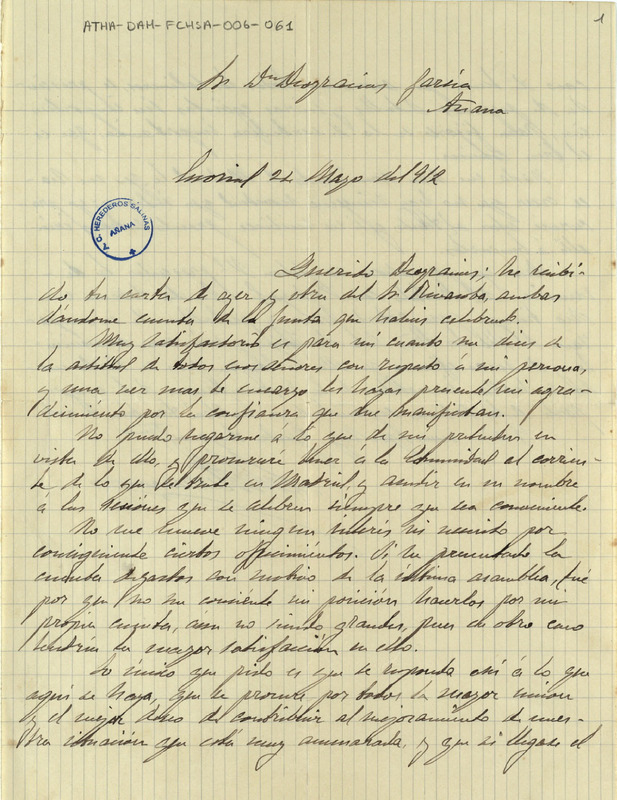 ATHA-DAH-FCHSA-006-061
1
Sr Dn Deogracias García
Añana
24 Mayo del 912
HEREDEROS SALINAS
AÑANA
Querido Deogracias; he recibi-
do tu carta de ayer y otra del Sr ambas
dándome cuenta de la Junta que habeis celebrado.
Muy satisfactorio es para mi cuanto me dices de
la actitud de todos esos señores con respecto á mi persona,
y una vez mas te encargo les hagas presente mi agra-
decimiento por la confianza que me manifiestan.
No puedo negarme á lo que de mi pretenden en
vista de ello, y procuraré tener á la Comunidad al corrien-
te de lo que se trate en Madrid y acudir en su nombre
á las reuniones que se celebren siempre que sea conveniente.
No me mueve ningun interés ni necesito por
consiguiente ciertos ofrecimientos. Si he presentado la
cuenta de gastos con motivo de la última asamblea, fué
por que no me consiente mi posición hacerlos por mi
propia cuenta, aun no siendo grandes, pues en otro caso
tendría la mayor satisfacción en ello.
Lo único que pido es que se responda ahí á lo que
aquí se haga, que se procure por todos la mayor union
y el mejor deseo de contribuir al mejoramiento de nues-
tra situación que está muy amenazada, y que si llegase el